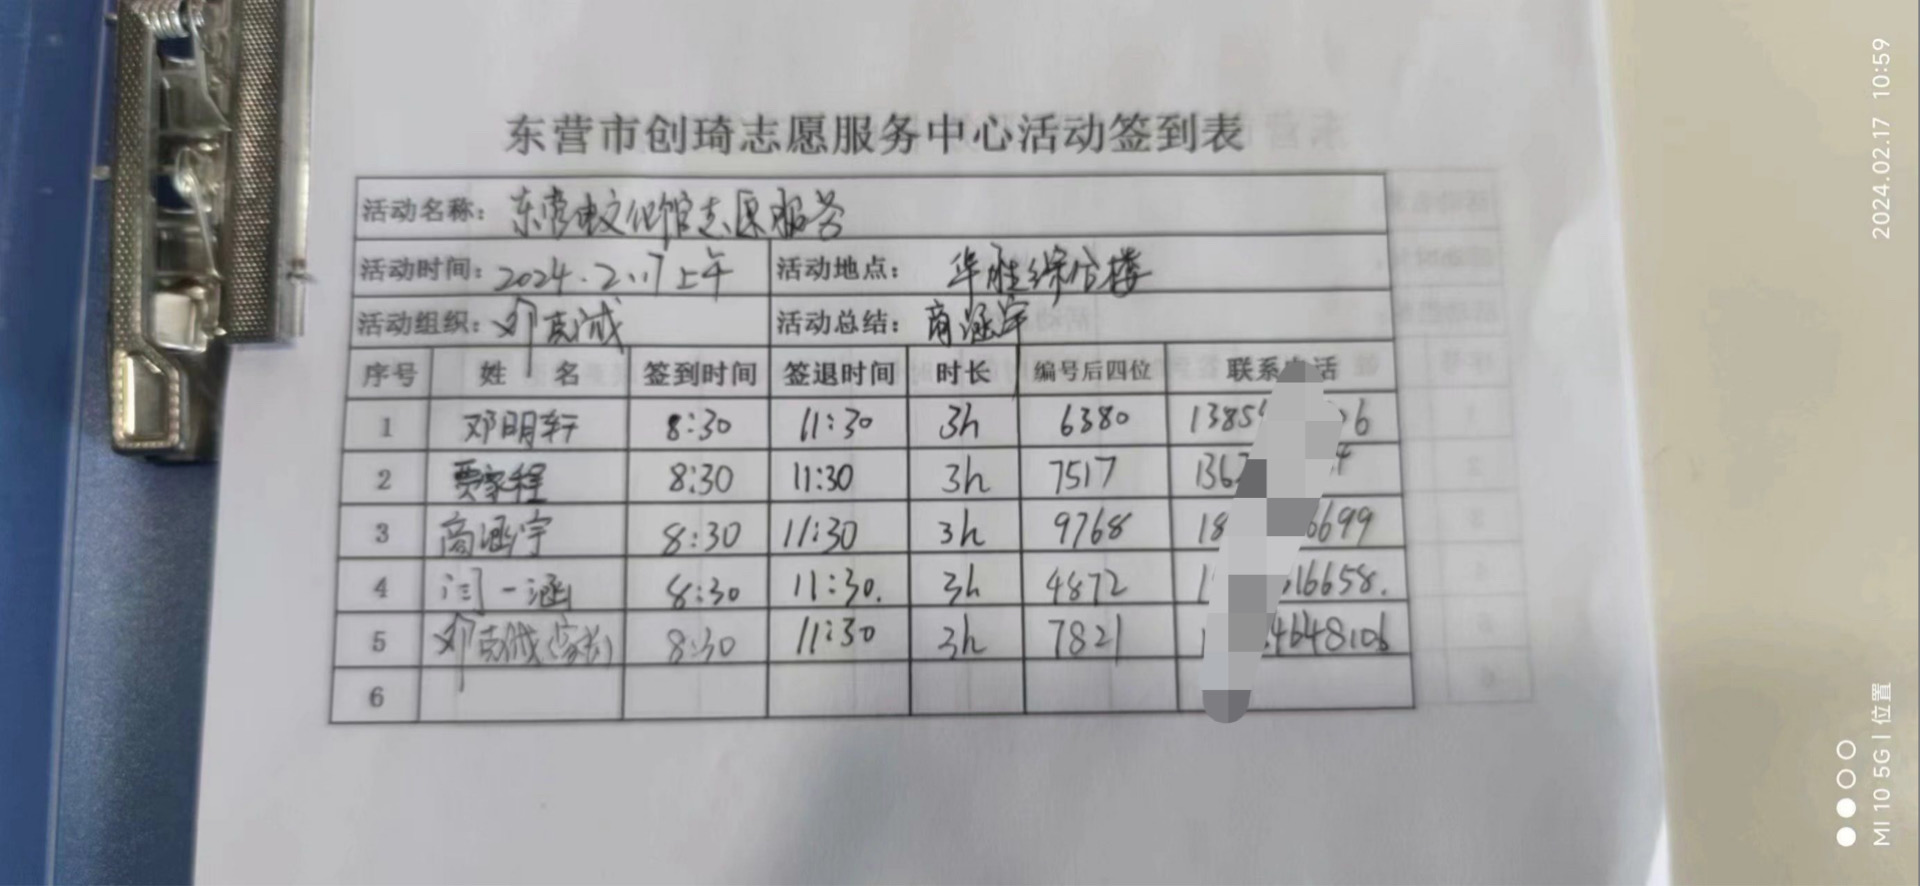 东营市创琦志愿服务中心活动签到表
活动名称： 东营市文化馆志愿服务
活动时间： 2024.2.17上午 活动地点： 华胜综合楼
活动组织： 邓克诚 活动总结： 商涵宇
序号 姓 名 签到时间 签退时间 时长 编号后四位 联系 话
1 邓明轩 8:30 11:30 3h 6380 1385 26
2 贾家程 8:30 11:30 3h 7517 136 4
3 商涵宇 8:30 11:30 3h 9768 18 6699
4 闫一涵 8:30 11:30. 3h 4872 1 16658.
5 邓克诚(家长) 8:30 11:30 3h 7821 4648106
6
2024.02.17 10:59
MI 10 5G | 位置